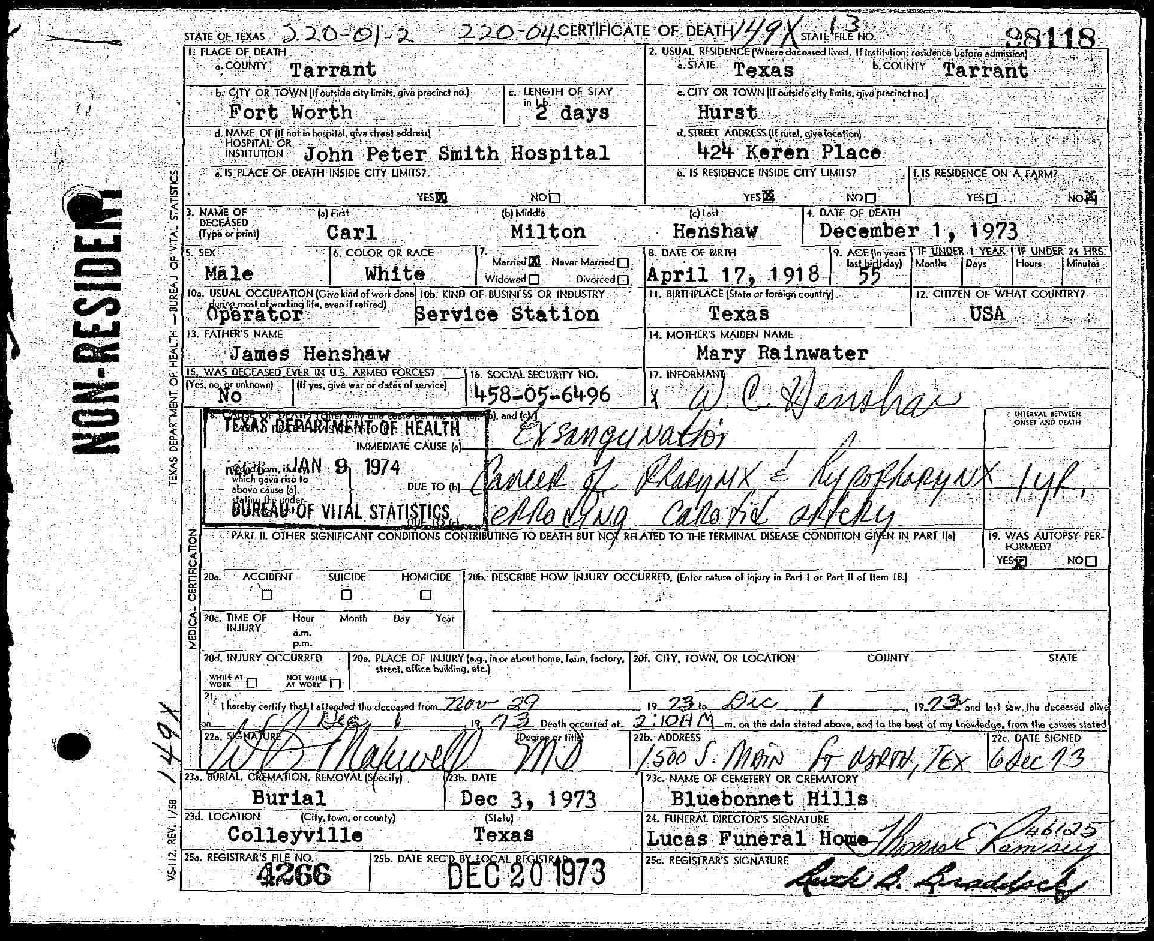 STATE OF TEXAS 220-01-2 220-04 CERTIFICATE OF DEATH 149X 13 STATE FILE NO. 98118
1. PLACE OF DEATH
a. COUNTY Tarrant
2. USUAL RESIDENCE (Where deceased lived, If institution: residence before admission)
a. STATE Texas b. COUNTY Tarrant
b. CITY OR TOWN (If outside city limits, give precinct no.) Fort Worth
c. LENGTH OF STAY in 1b 2 days
c. CITY OR TOWN (If outside city limits, give precinct no.) Hurst
d. NAME OF (If not in hospital, give street address) HOSPITAL OR INSTITUTION John Peter Smith Hospital
d. STREET ADDRESS (If rural, give location) 424 Keren Place
e. IS PLACE OF DEATH INSIDE CITY LIMITS?
YES NO
e. IS RESIDENCE INSIDE CITY LIMITS?
YES NO
f. IS RESIDENCE ON A FARM?
YES NO
3. NAME OF DECEASED (Type or print)
(a) First Carl
(b) Middle Milton
(c) Last Henshaw
4. DATE OF DEATH December 1, 1973
5. SEX Male
6. COLOR OR RACE White
7. Married Never Married
Widowed Divorced
8. DATE OF BIRTH April 17, 1918
9. AGE (In years last birthday) 55
IF UNDER 1 YEAR Months Days
IF UNDER 24 HRS. Hours Minutes
10a. USUAL OCCUPATION (Give kind of work done during most of working life, even if retired) Operator
10b. KIND OF BUSINESS OR INDUSTRY Service Station
11. BIRTHPLACE (State or foreign country) Texas
12. CITIZEN OF WHAT COUNTRY? USA
13. FATHER'S NAME James Henshaw
14. MOTHER'S MAIDEN NAME Mary Rainwater
15. WAS DECEASED EVER IN U.S. ARMED FORCES?
(Yes, no, or unknown) No
(If yes, give war or dates of service)
16. SOCIAL SECURITY NO. 458-05-6496
17. INFORMANT X W C Henshaw
(b), and (c).
TEXAS DEPARTMENT OF HEALTH
JAN 9 1974
BUREAU OF VITAL STATISTICS
IMMEDIATE CAUSE (a) Exsanguination
which gave rise to above cause (a),
DUE TO (b) Cancer of Pharynx & Hypopharynx
eRRoding caRotid aRtery
INTERVAL BETWEEN ONSET AND DEATH
1 yR.
PART II. OTHER SIGNIFICANT CONDITIONS CONTRIBUTING TO DEATH BUT NOT RELATED TO THE TERMINAL DISEASE CONDITION GIVEN IN PART I(a)
19. WAS AUTOPSY PERFORMED?
YES NO
20a. ACCIDENT SUICIDE HOMICIDE
20b. DESCRIBE HOW INJURY OCCURRED. (Enter nature of injury in Part I or Part II of Item 18.)
20c. TIME OF INJURY Hour Month Day Year
a.m.
p.m.
20d. INJURY OCCURRED
WHILE AT WORK NOT WHILE AT WORK
20e. PLACE OF INJURY (e.g., in or about home, farm, factory, street, office building, etc.)
20f. CITY, TOWN, OR LOCATION COUNTY STATE
21. I hereby certify that I attended the deceased from Nov 29 1973 to Dec 1 1973 and last saw the deceased alive
on Dec 1 1973 Death occurred at 2:10AM m. on the date stated above, and to the best of my knowledge, from the causes stated
22a. SIGNATURE (Degree or title) MD
22b. ADDRESS 1500 S. MAIN Ft WORTH, TEX
22c. DATE SIGNED 6 Dec 73
23a. BURIAL, CREMATION, REMOVAL (Specify) Burial
23b. DATE Dec 3, 1973
23c. NAME OF CEMETERY OR CREMATORY Bluebonnet Hills
23d. LOCATION (City, town, or county) (State)
Colleyville Texas
24. FUNERAL DIRECTOR'S SIGNATURE
Lucas Funeral Home Thomas E Ramsey 46125
25a. REGISTRAR'S FILE NO. 4266
25b. DATE REC'D BY LOCAL REGISTRAR DEC 20 1973
25c. REGISTRAR'S SIGNATURE Ruth B. Braddock
NON-RESIDENT
TEXAS DEPARTMENT OF HEALTH—BUREAU OF VITAL STATISTICS
MEDICAL CERTIFICATION
149X
VS-112. REV. 1/58